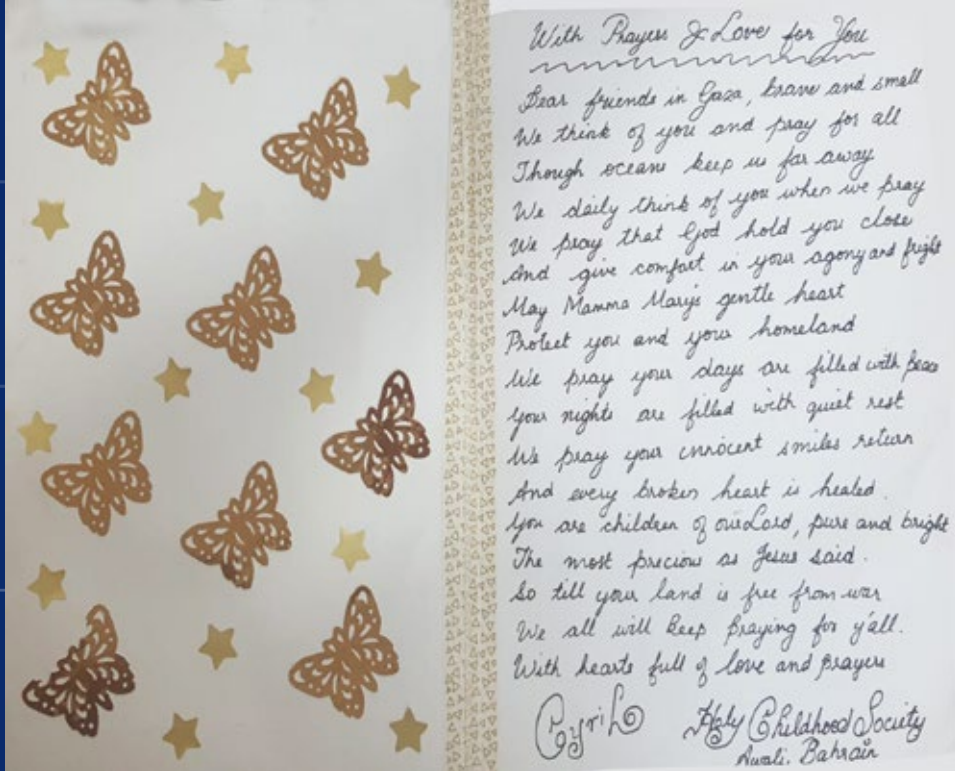 With Prayers & Love for You
Dear friends in Gaza, brave and small
We think of you and pray for all
Though oceans keep us far away
We daily think of you when we pray
We pray that God hold you close
And give comfort in your agony and fright
May Mamma Mary's gentle heart
Protect you and your homeland
We pray your days are filled with peace
Your nights are filled with quiet rest
We pray your innocent smiles return
And every broken heart is healed.
You are children of our Lord, pure and bright
The most precious as Jesus said.
So till your land is free from war
We all will keep praying for y'all.
With hearts full of love and prayers
Cyril Holy Childhood Society
Awali. Bahrain